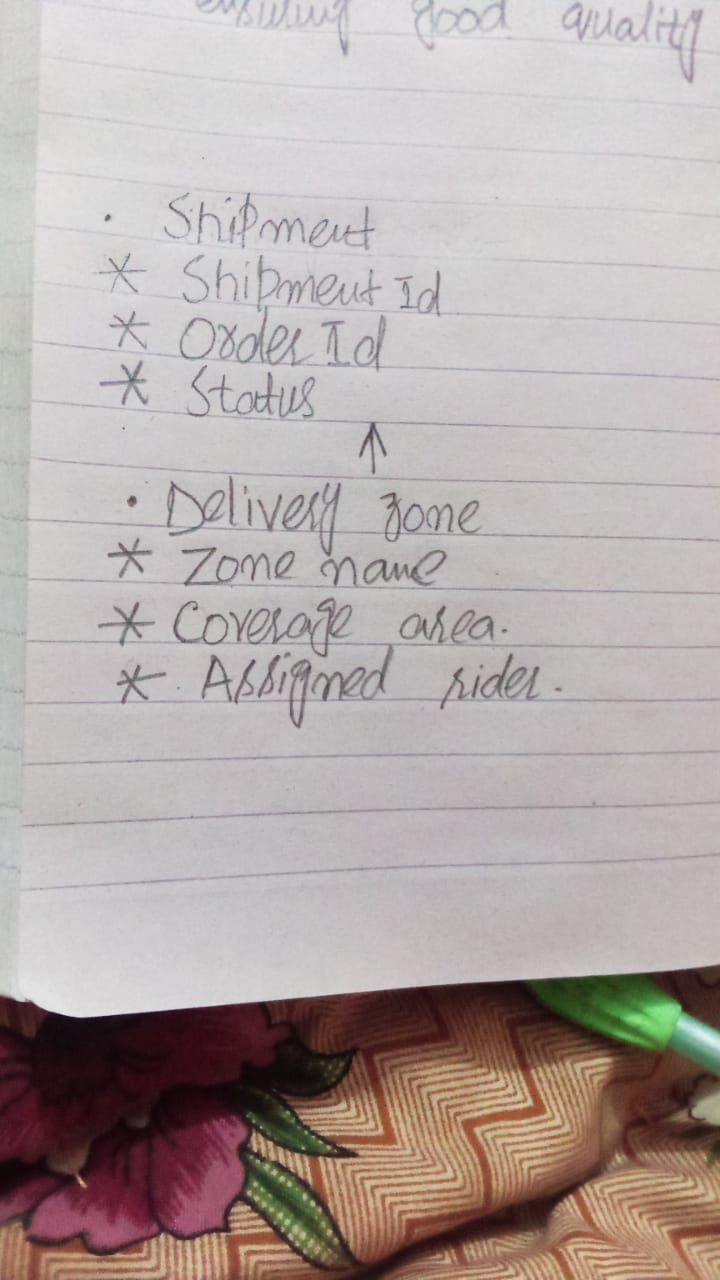 ensuring good quality
. Shipment
* Shipment Id
* Order Id
* Status
↑
. Delivery zone
* Zone name
* Coverage area.
* Assigned rider.